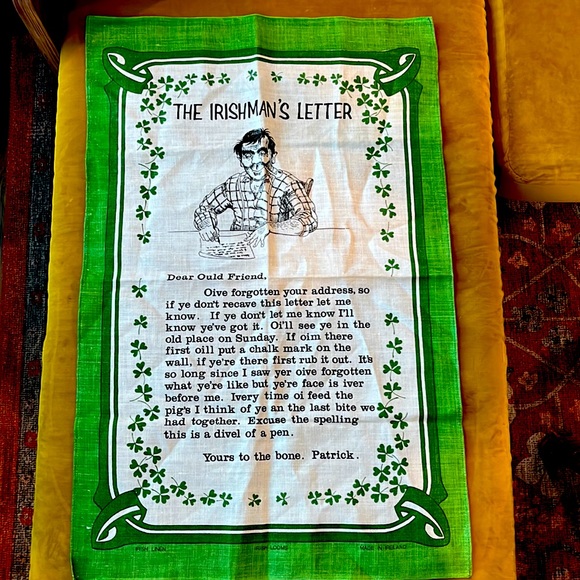 THE IRISHMAN'S LETTER
Dear Ould Friend,
Oive forgotten your address, so
if ye don't recave this letter let me
know. If ye don't let me know I'll
know ye've got it. Oi'll see ye in the
old place on Sunday. If oim there
first oill put a chalk mark on the
wall, if ye're there first rub it out. It's
so long since I saw yer oive forgotten
what ye're like but ye're face is iver
before me. Ivery time oi feed the
pig's I think of ye an the last bite we
had together. Excuse the spelling
this is a divel of a pen.
Yours to the bone. Patrick.
IRISH LINEN
MADE IN IRELAND